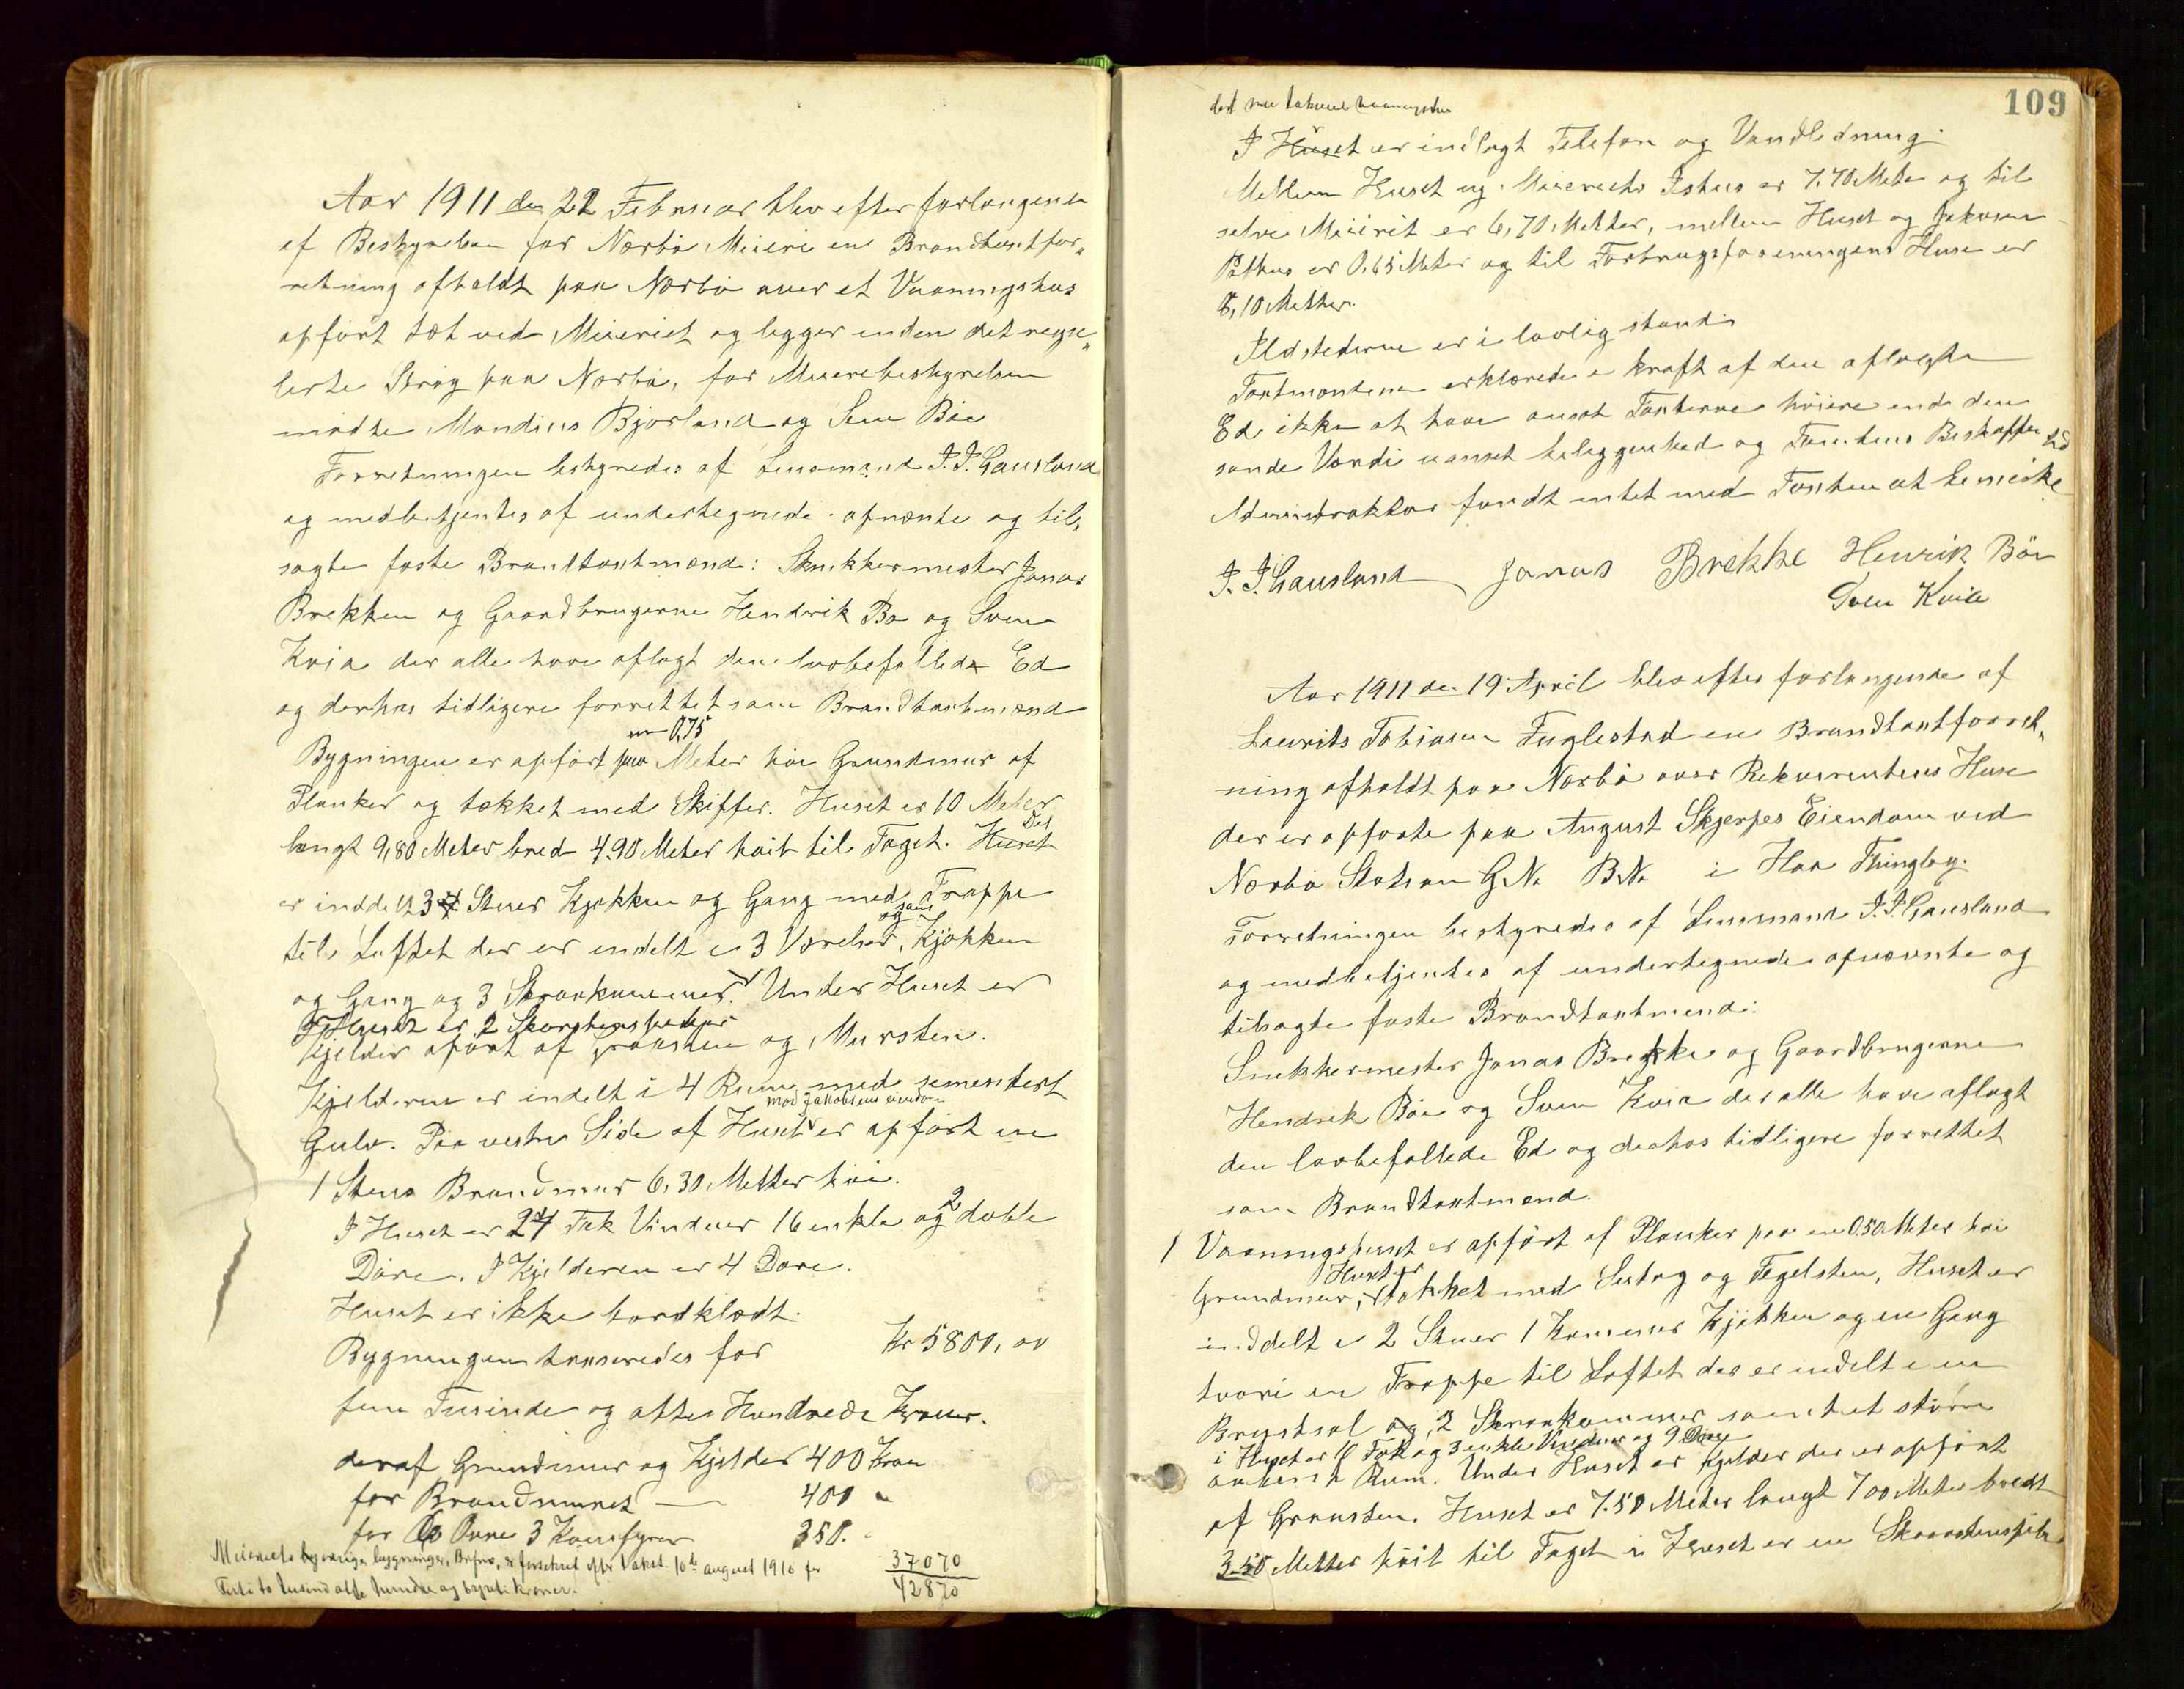 Aar 1911 den 22 Februar blev efter forlangende
af Bestyrelsen for Nærbø Mieri en Brandtaxtfor„
retning afholdt paa Nærbø over et Vaaningshus
opført tæt ved Mieriet og ligger inden det regu„
lerte Strøg paa Nærbø, for Mieribestyrelsen
mødte Mandius Bjorland og Sem Bøe
Forretningen bestyredes af Lensmand J. J. Gausland
og medbetjentes af undertegnede opnænte og til„
sagte faste Brandtaxtmænd: Snekkermester Jonas
Brekken og Gaardbrugerne Hendrik Bø og Sven
Kvia der alle have aflagt den lovbefallede Ed
og derhos tidligere forrettet som Brandtaxtmænd
en 0,75
Bygningen er opført paa Meter høi Grundmur af
Planker og tækket med Skiffer. Huset er 10 Meter
langt 9,80 Meter bred 4.90 Meter høit til Taget. Huset
Det
er inddelt 3 Stuer Kjøkken og Gang med Trappe
til Loftet der er indelt i 3 Værelser, Kjøkken
og samt
og Gang og 3 Skraakammer. Under Huset er
I Huset er 2 Skorstenspiber
Kjelder opført af Graasten og Mursten.
Kjelderen er indelt i 4 Rum med sementert
mod Jakobsens eiendom
Gulv. Paa vestre Side af Huset er opført en
1 Stens Brandmur 6,30 Metter høi.
I Huset er 24 Fak Vinduer 16 enkle og 2 doble
Døre. I Kjelderen er 4 Døre.
Huset er ikke bordklædt.
Bygningen taxeredes for Kr 5800,00
fem Tusinde og otte Hundrede Kroner.
deraf Grundmur og Kjelder 400 Kroner
for Brandmuret — 400 "
for Ovne 3 Komfyrer 350. "
Mieriets øvrige bygninger, er forsikret efter Takst 10de august 1910 for 37070
Førti to tusind otte hundre og sytti kroner. 42870
109
det nu takserte vaaningshus
I Huset er indlagt Telefon og Vandledning.
Mellem Huset og Mieriets Ishus er 7.70 Meter og til
selve Mieriet er 6,70 Metter, mellem Huset og Jakobsen
Pakhus er 0.65 Meter og til Forbrugsforeningens Huse er
8,10 Metter.
Ildstederne er i lovlig stand.
Taxtmændene erklærede i kraft af den aflagte
Ed ikke at have ansat Taxterne høiere end den
sande Værdi uanset beliggenhed og Tomtens Beskaffenhed
Administraktor fandt intet med Taxten at bemerke
J. J. Gausland Jonas Brekke Henrik Böe
Sven Kvia
Aar 1911 den 19 April blev efter forlangende af
Lauritz Tobiasen Fuglestad en Brandtaxtforret„
ning afholdt paa Nærbø over Rekvirentens Huse
der er opførte paa August Skjerpes Eiendom ved
Nærbø Station G.No B.No i Haa Thinglag.
Forretningen bestyredes af Lensmand J. J. Gausland
og medbetjentes af undertegnede opnævnte og
tilsagte faste Brandtaxtmænd:
Snekkermester Jonas Brekke og Gaardbrugerne
Hendrik Bøe og Sven Kvia der alle have aflagt
den lovbefallede Ed og derhos tidligere forrettet
som Brandtaxtmænd.
1 Vaaningshuset er opført af Planker paa en 0.50 Meter høi
Huset er
Grundmur, tækket med Sutag og Tegelsten, Huset er
inddelt i 2 Stuer 1 Kammer Kjøkken og en Gang
hvori en Trappe til Loftet der er indelt i en
Brystsal og 2 Skraakammer samt et større
i Huset er 10 Fak og 3 enkle Vinduer og 9 Døre
aabent Rum. Under Huset er Kjelder der er opført
af Graasten. Huset er 7.50 Meter langt 7 00 Meter bredt
3.50 Metter høit til Taget i Huset er en Skorstenspibe